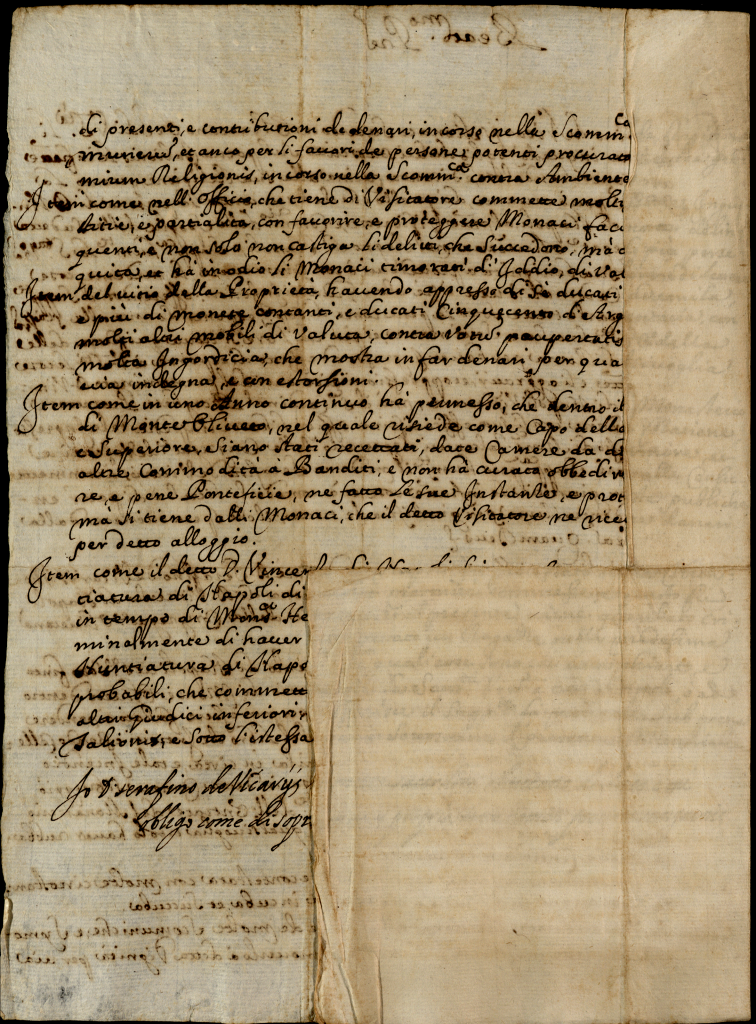 di presenti, e contributioni de denari, incorso nella Scomm.ca
munera, et anco per li favori de persone potenti procurato
mium Religionis, incorso nella Scomm.ca contra Ambiente
Item come nell' Officio, che tiene di Visitatore commette molte
titie, e partialità, con favorire, e proteggere Monaci faci
quenti, e non solo non castiga li delitti, che succedono, ma
quita, et ha in odio li Monaci timorati di Iddio, di
Item del vitio della Proprietà, havendo appresso di se ducati
e più di monete contanti, e ducati Cinquecento di Arg
molti altri mobili di valuta, contra votũ paupertatis
molta Ingordicia, che mostra in far denari per qua
via indegna, e con estorsioni.
Item come in uno Anno continuo hà permesso, che dentro il
di Monte Oliveto, nel quale risiede come Capo dello
e Superiore, siano stati recettati, date Camere da
altre Commodità a Banditi, e non ha curato obbedire
re, e pene Pontificie, ne fatto le sue Instantie, e prot
mà si tiene dalli Monaci, che il detto Visitatore ne rice
per detto alloggio.
Item come il detto D. Vincen
tiatura di Napoli di
in tempo di Mons.or He
minalmente di haver
Nuntiatura di Napo
probabili, che commett
altri Giudici inferiori
Salvoni, e sotto l'istessa
Io D serafino de Vicarijs
obligo come di sopr